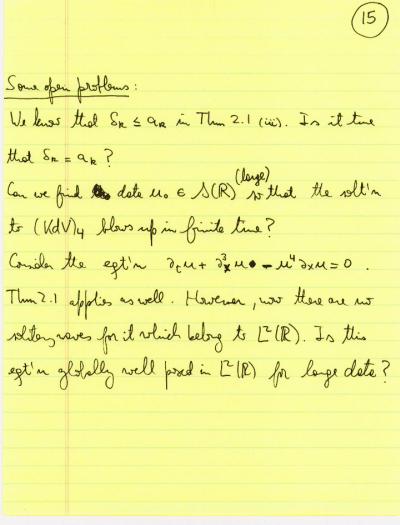 15
Some open problems:
We know that δ_k ≤ a_k in Thm 2.1 (iii). Is it true
that δ_k = a_k?
(large)
Can we find data u₀ ∈ S(ℝ) so that the solt'n
to (KdV)₄ blows up in finite time?
Consider the eqt'n ∂ₜu + ∂³ₓu - u⁴∂ₓu = 0.
Thm 2.1 applies as well. However, now there are no
solitary waves for it which belong to L²(ℝ). Is this
eqt'n globally well posed in L²(ℝ) for large data?